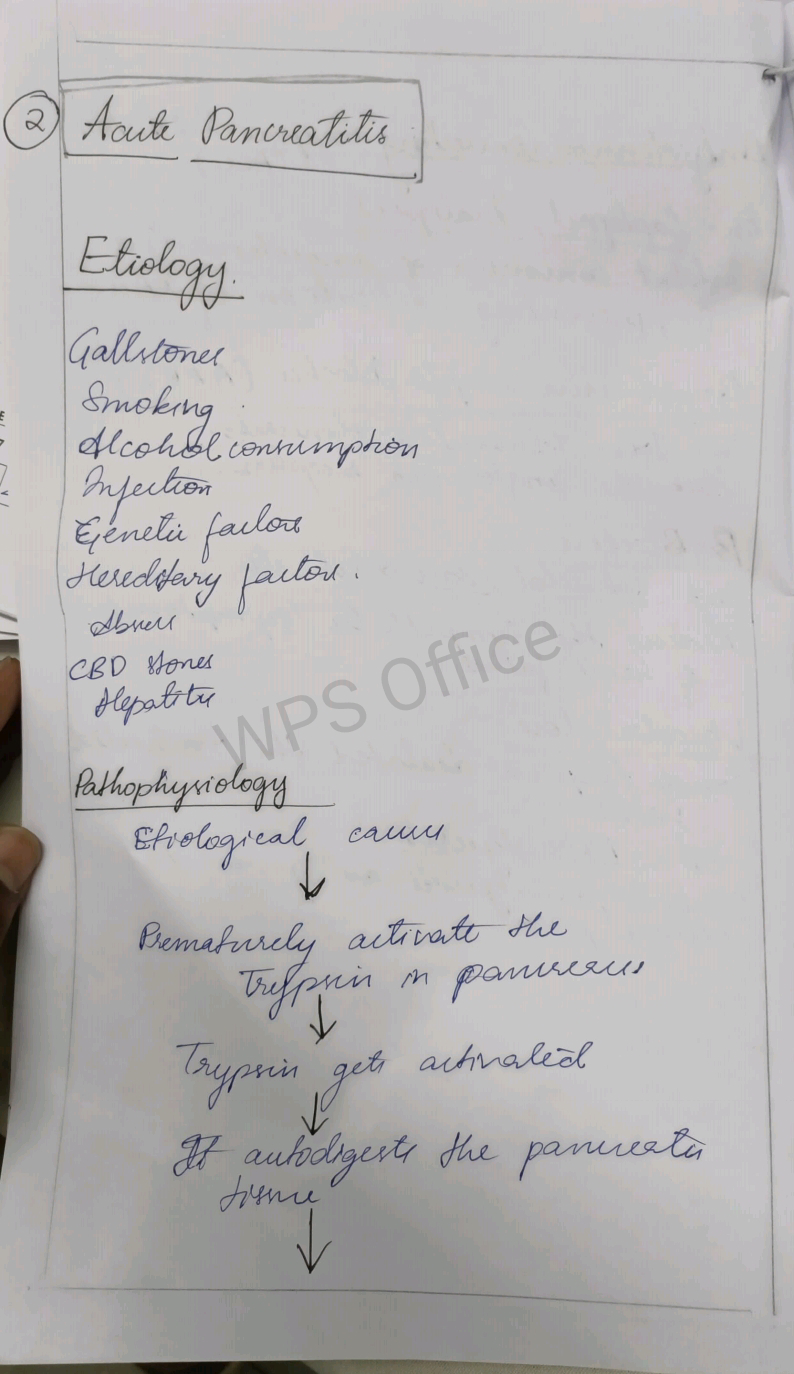 2
Acute Pancreatitis
Etiology.
Gallstones
Smoking
Alcohol consumption
Infection
Genetic factors
Hereditary factor.
CBD stones
Hepatitis
WPS Office
Pathophysiology
Etiological cause
↓
Prematurely activate the
Trypsin in pancreas
↓
Trypsin gets activated
↓
It autodigests the pancreatic
tissue
↓